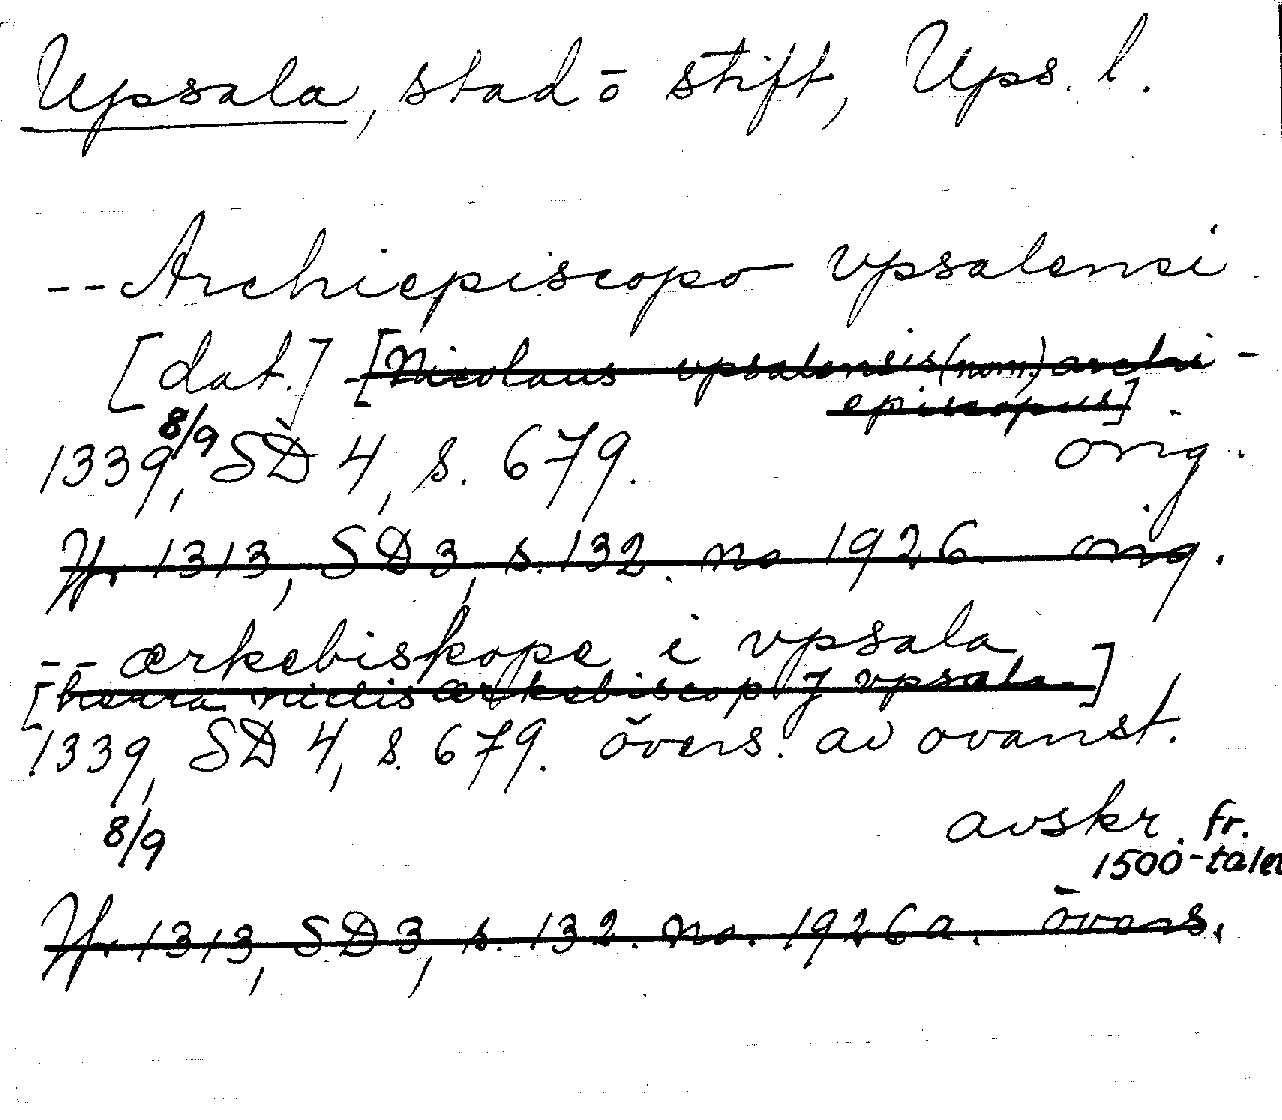 Upsala, stad o stift, Ups. l.
-- Archiepiscopo vpsalensi
[dat.] [Nicolaus vpsalensis (nom.) archi-
episcopus].
1339 8/9, SD 4, s. 679. orig.
Jf. 1313, SD 3, s. 132. no 1926. orig.
-- ærkebiskope i vpsala
[herra niclis ærkebiscop J vpsala]
1339, SD 4, s. 679. övers. av ovanst.
8/9 avskr. fr.
1500-talet
Jf. 1313, SD 3, s. 132. no. 1926a. övers.